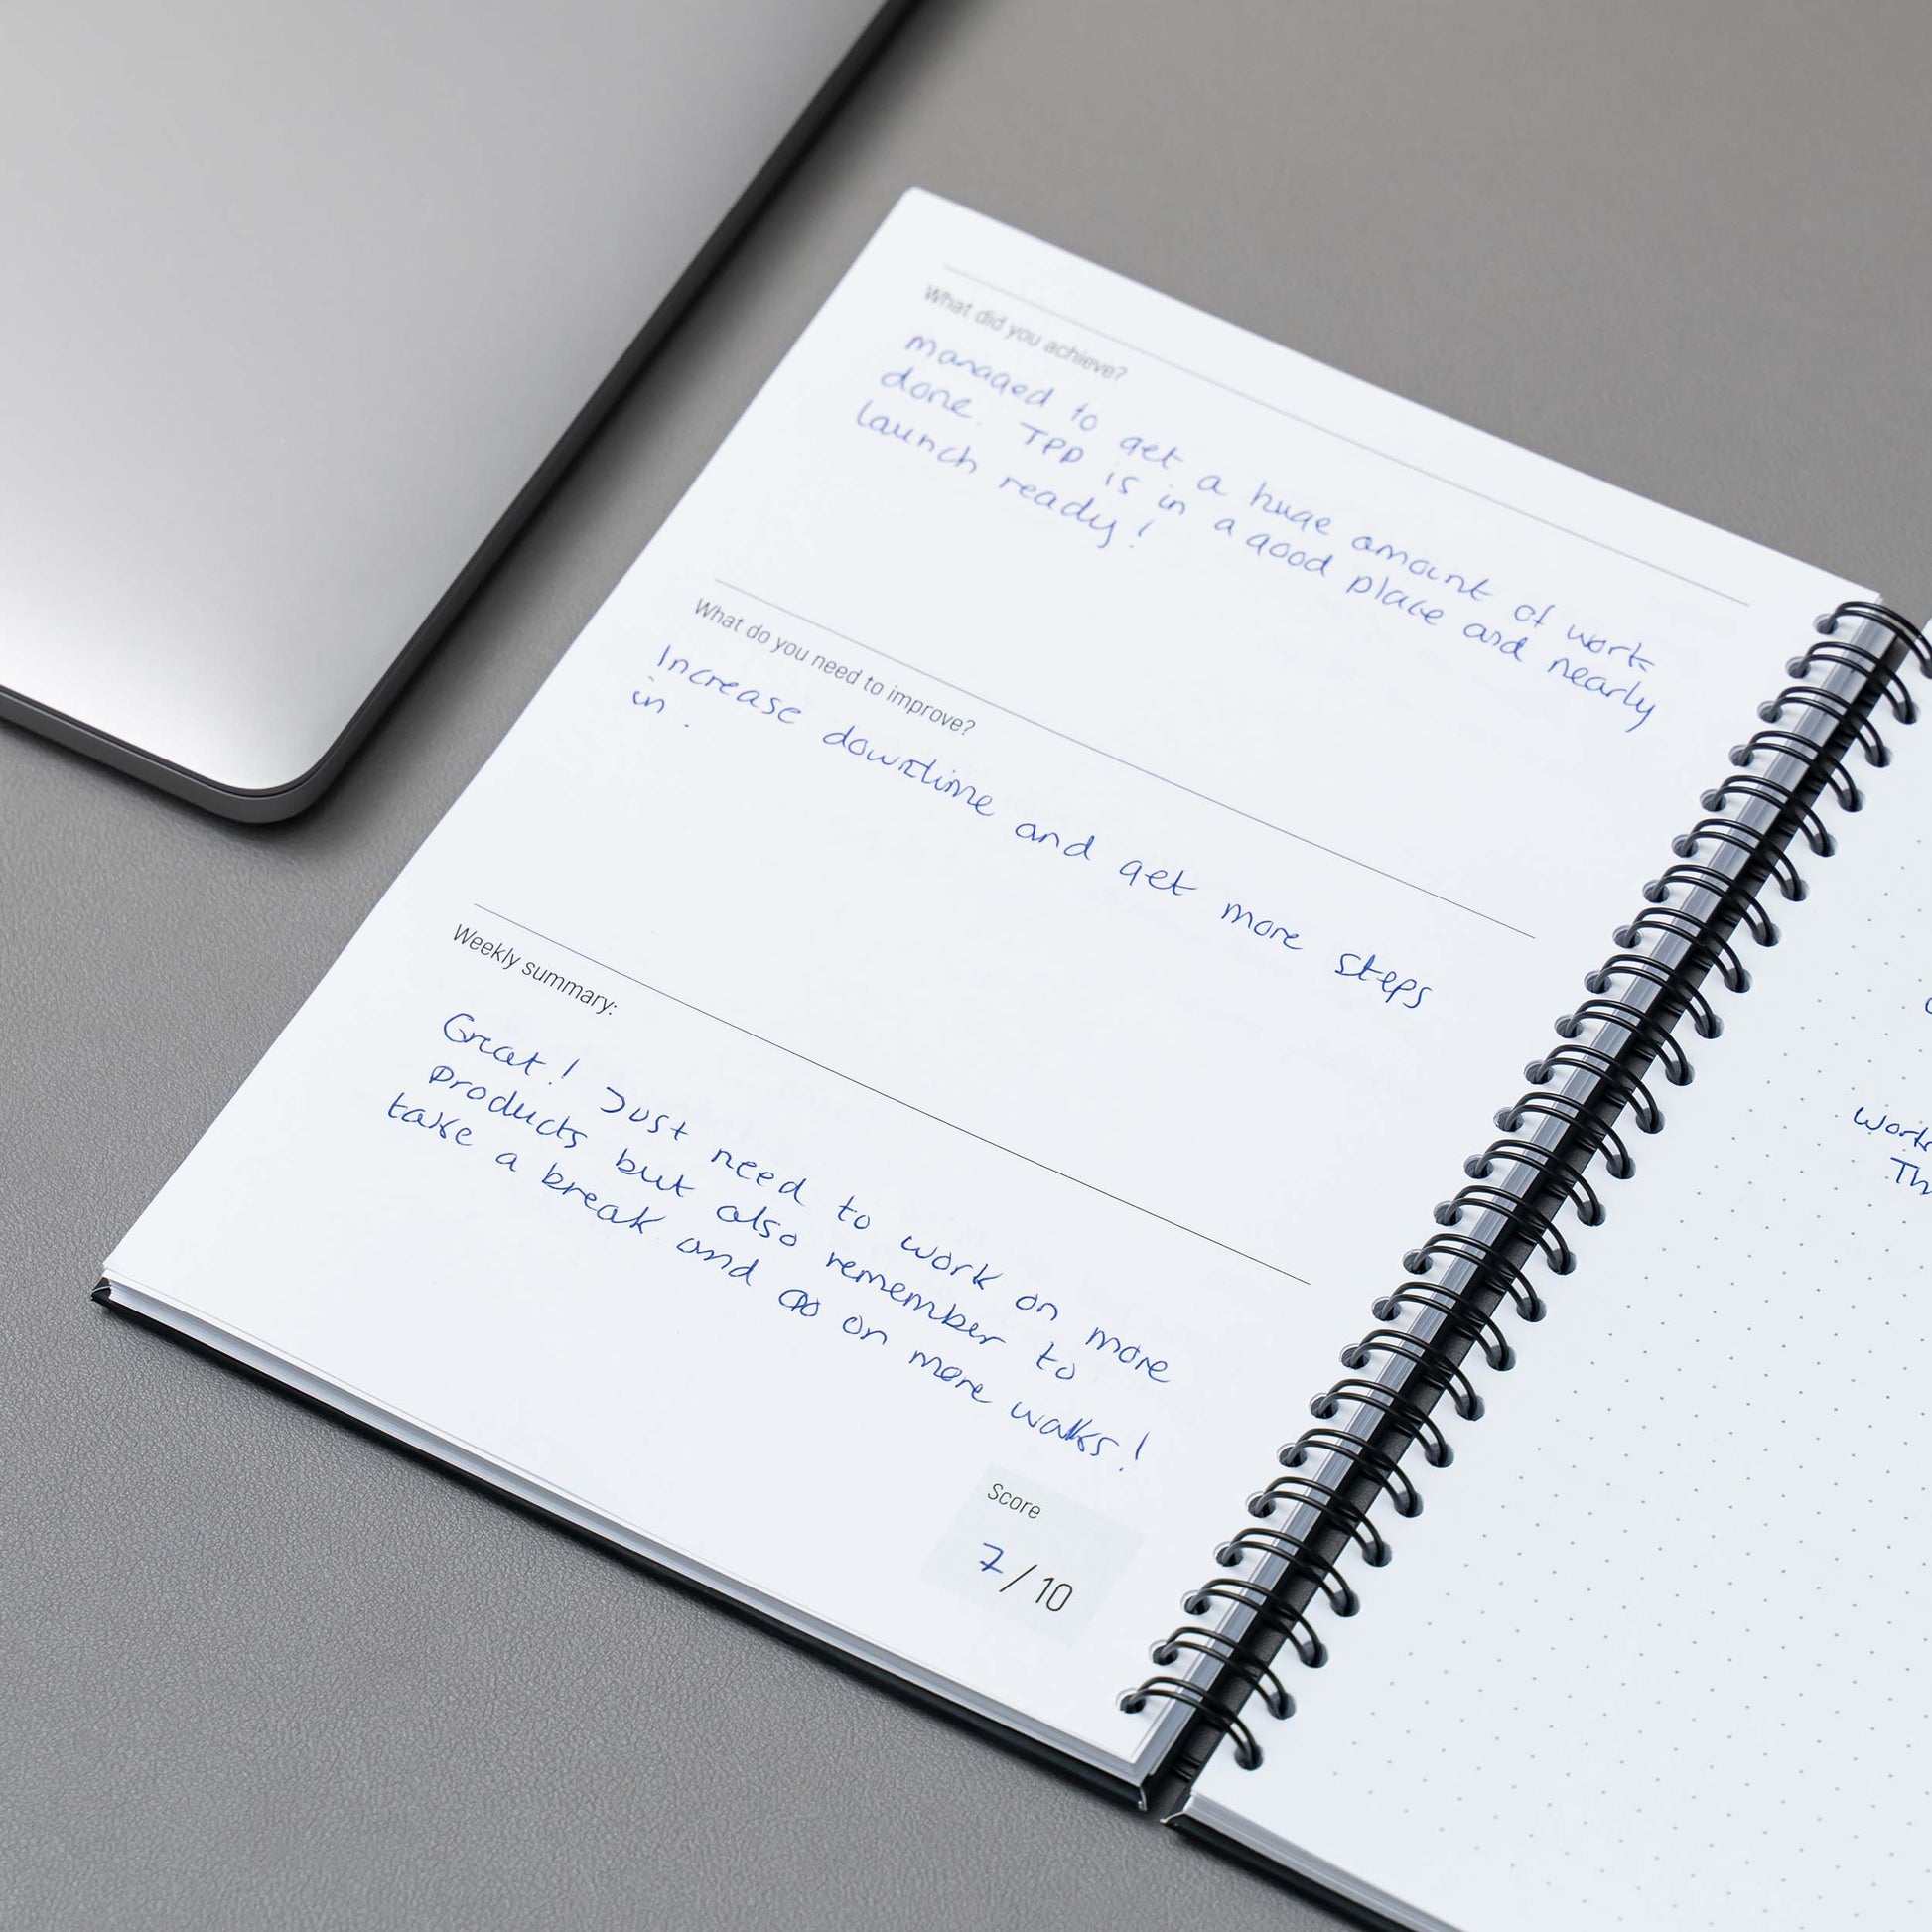 What did you achieve?
managed to get a huge amount of work
done. TPD is in a good place and nearly
launch ready!
What do you need to improve?
Increase downtime and get more steps
in.
Weekly summary:
Great! Just need to work on more
products but also remember to
take a break and go on more walks!
Score
7/10
Th